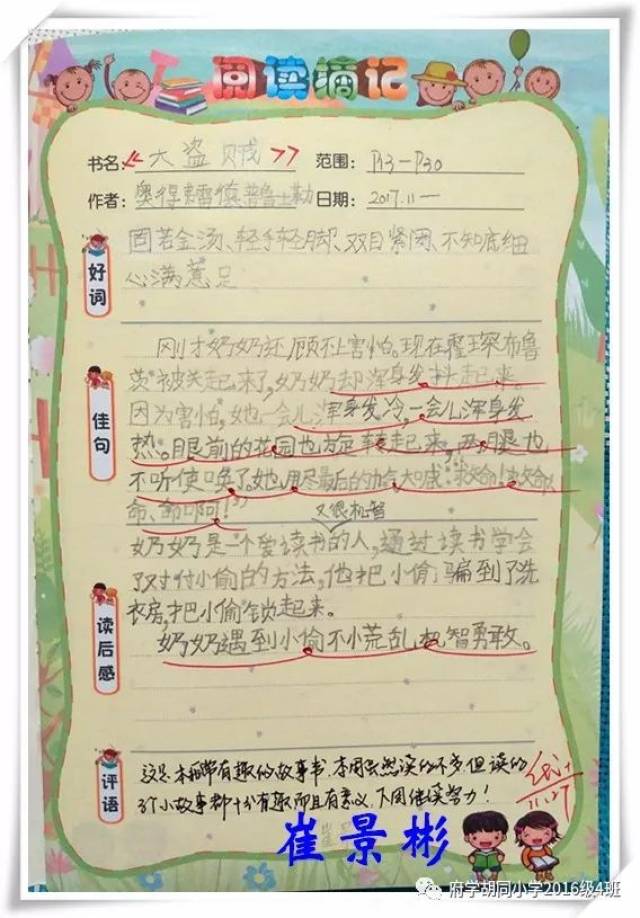 阅读摘记
书名:《大盗贼》 范围: P13-P30
作者: 奥得弗雷德普鲁士勒 日期: 2017.11一
好词
固若金汤、轻手轻脚、双目紧闭、不知底细
心满意足
佳句
刚才奶奶还顾不上害怕。现在霍琴布鲁
茨被关起来了,奶奶却浑身发抖起来。
因为害怕,她一会儿浑身发冷,一会儿浑身发
热。眼前的花园也旋转起来,两腿也
不听使唤了。她用尽最后的力气大喊:救命!救命
命、命啊!
又很机智
奶奶是一个爱读书的人,通过读书学会
了对付小偷的方法,他把小偷骗到了洗
衣房,把小偷锁起来。
读后感
奶奶遇到小偷不小荒乱,机智勇敢。
评语
这是一本非常有趣的故事书,本周虽然读的不多,但读的
3个小故事都十分有趣而且有意义,下周继续努力!
11.27
崔景彬
府学胡同小学2016级4班